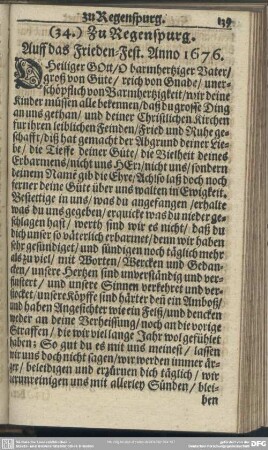 zu Regenspurg.
(34.) Zu Regenspurg.
Auff das Frieden-Fest. Anno 1676.
O Heiliger GOtt/O barmhertziger Vater/
groß von Güte/ reich von Gnade/ uner-
schöpflich von Barmhertzigkeit/wir deine
Kinder müssen alle bekennen/daß du grosse Ding
an uns gethan/ und deiner Christlichen Kirchen
für ihren leiblichen Feinden/Fried und Ruhe ge-
schafft/diß hat gemacht der Abgrund deiner Lie-
be/ die Tieffe deiner Güte/ die Vielheit deines
Erbarmens/nicht uns HErr/nicht uns/sondern
deinem Namē gib die Ehre/Ach so laß doch noch
ferner deine Güte über uns walten in Ewigkeit.
Befestige in uns/was du angefangen/erhalte
was du uns gegeben/erquicke was du nieder ge-
schlagen hast/ werth sind wir es nicht/ daß du
dich unser so väterlich erbarmet/denn wir haben
sehr gesündiget/ und sündigen noch täglich mehr
als zu viel/ mit Worten/Wercken und Gedan-
cken/unsere Hertzen sind unverständig und ver-
finstert/ und unsere Sinnen verkehret und ver-
stocket/unsere Köpffe sind härter deñ ein Amboß/
und haben Angesichter wie ein Felß/und dencken
weder an deine Verheissung/ noch an die vorige
Straffen/ die wir viel lange Jahr wol gefühlet
haben; So gut du es mit uns meinest/ lassen
wir uns doch nicht sagen/wir werden immer är-
ger/ beleidigen und erzürnen dich täglich/ wir
verunreinigen uns mit allerley Sünden/ blei-
ben